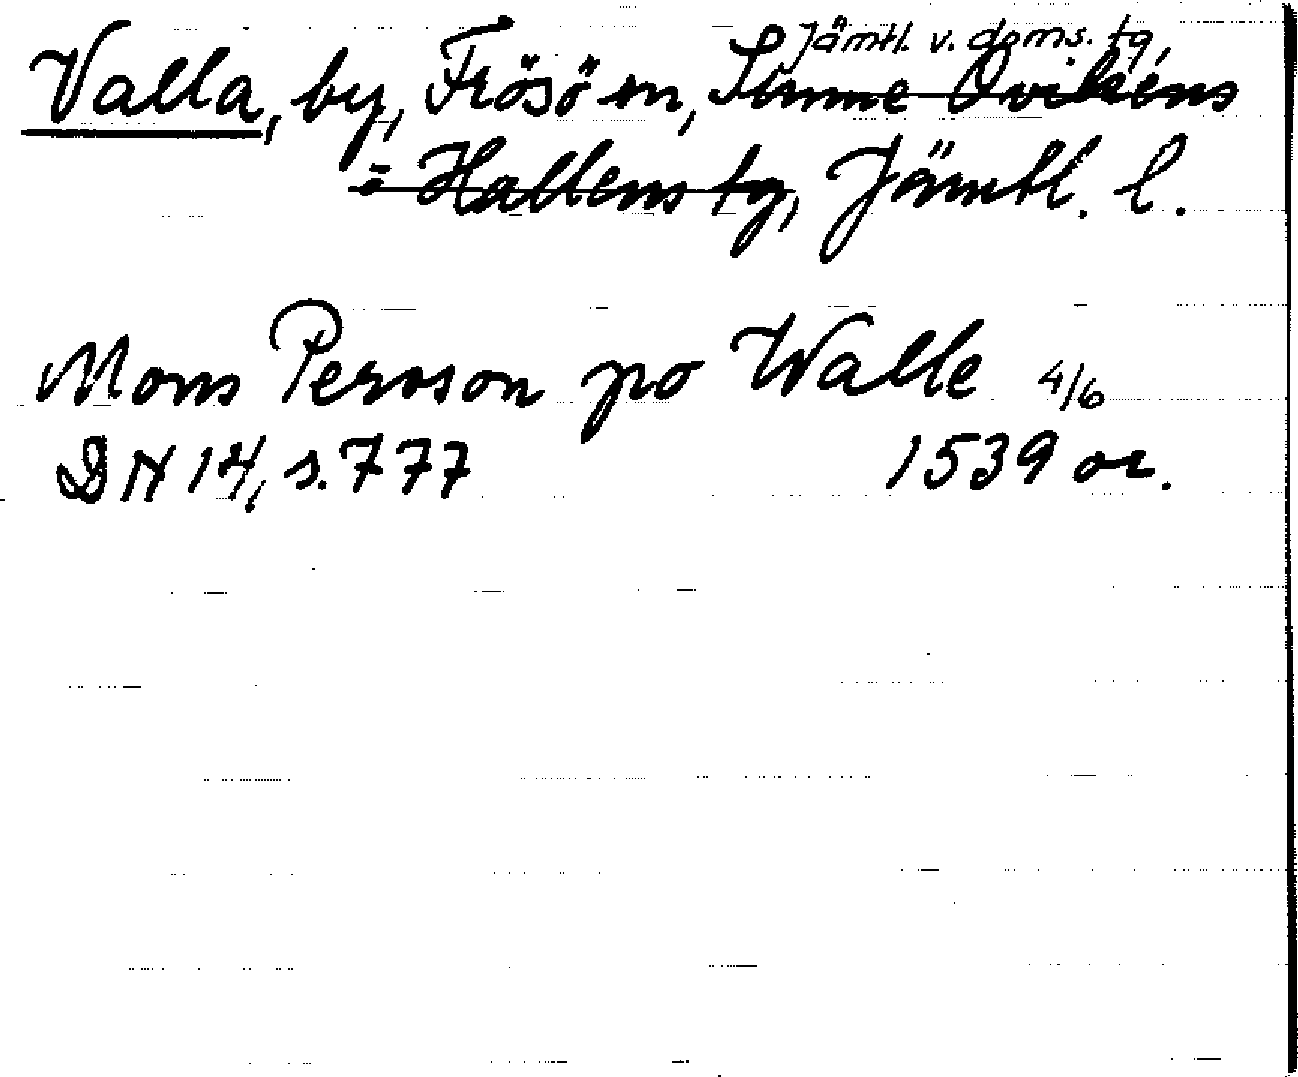 Jämtl. v. doms. tg,
Valla, by, Frösö sn, Sunne Ovikens
o Hallens tg, Jämtl. l.
Mons Persson po Walle 4/6
DN 14, s. 777 1539 or.